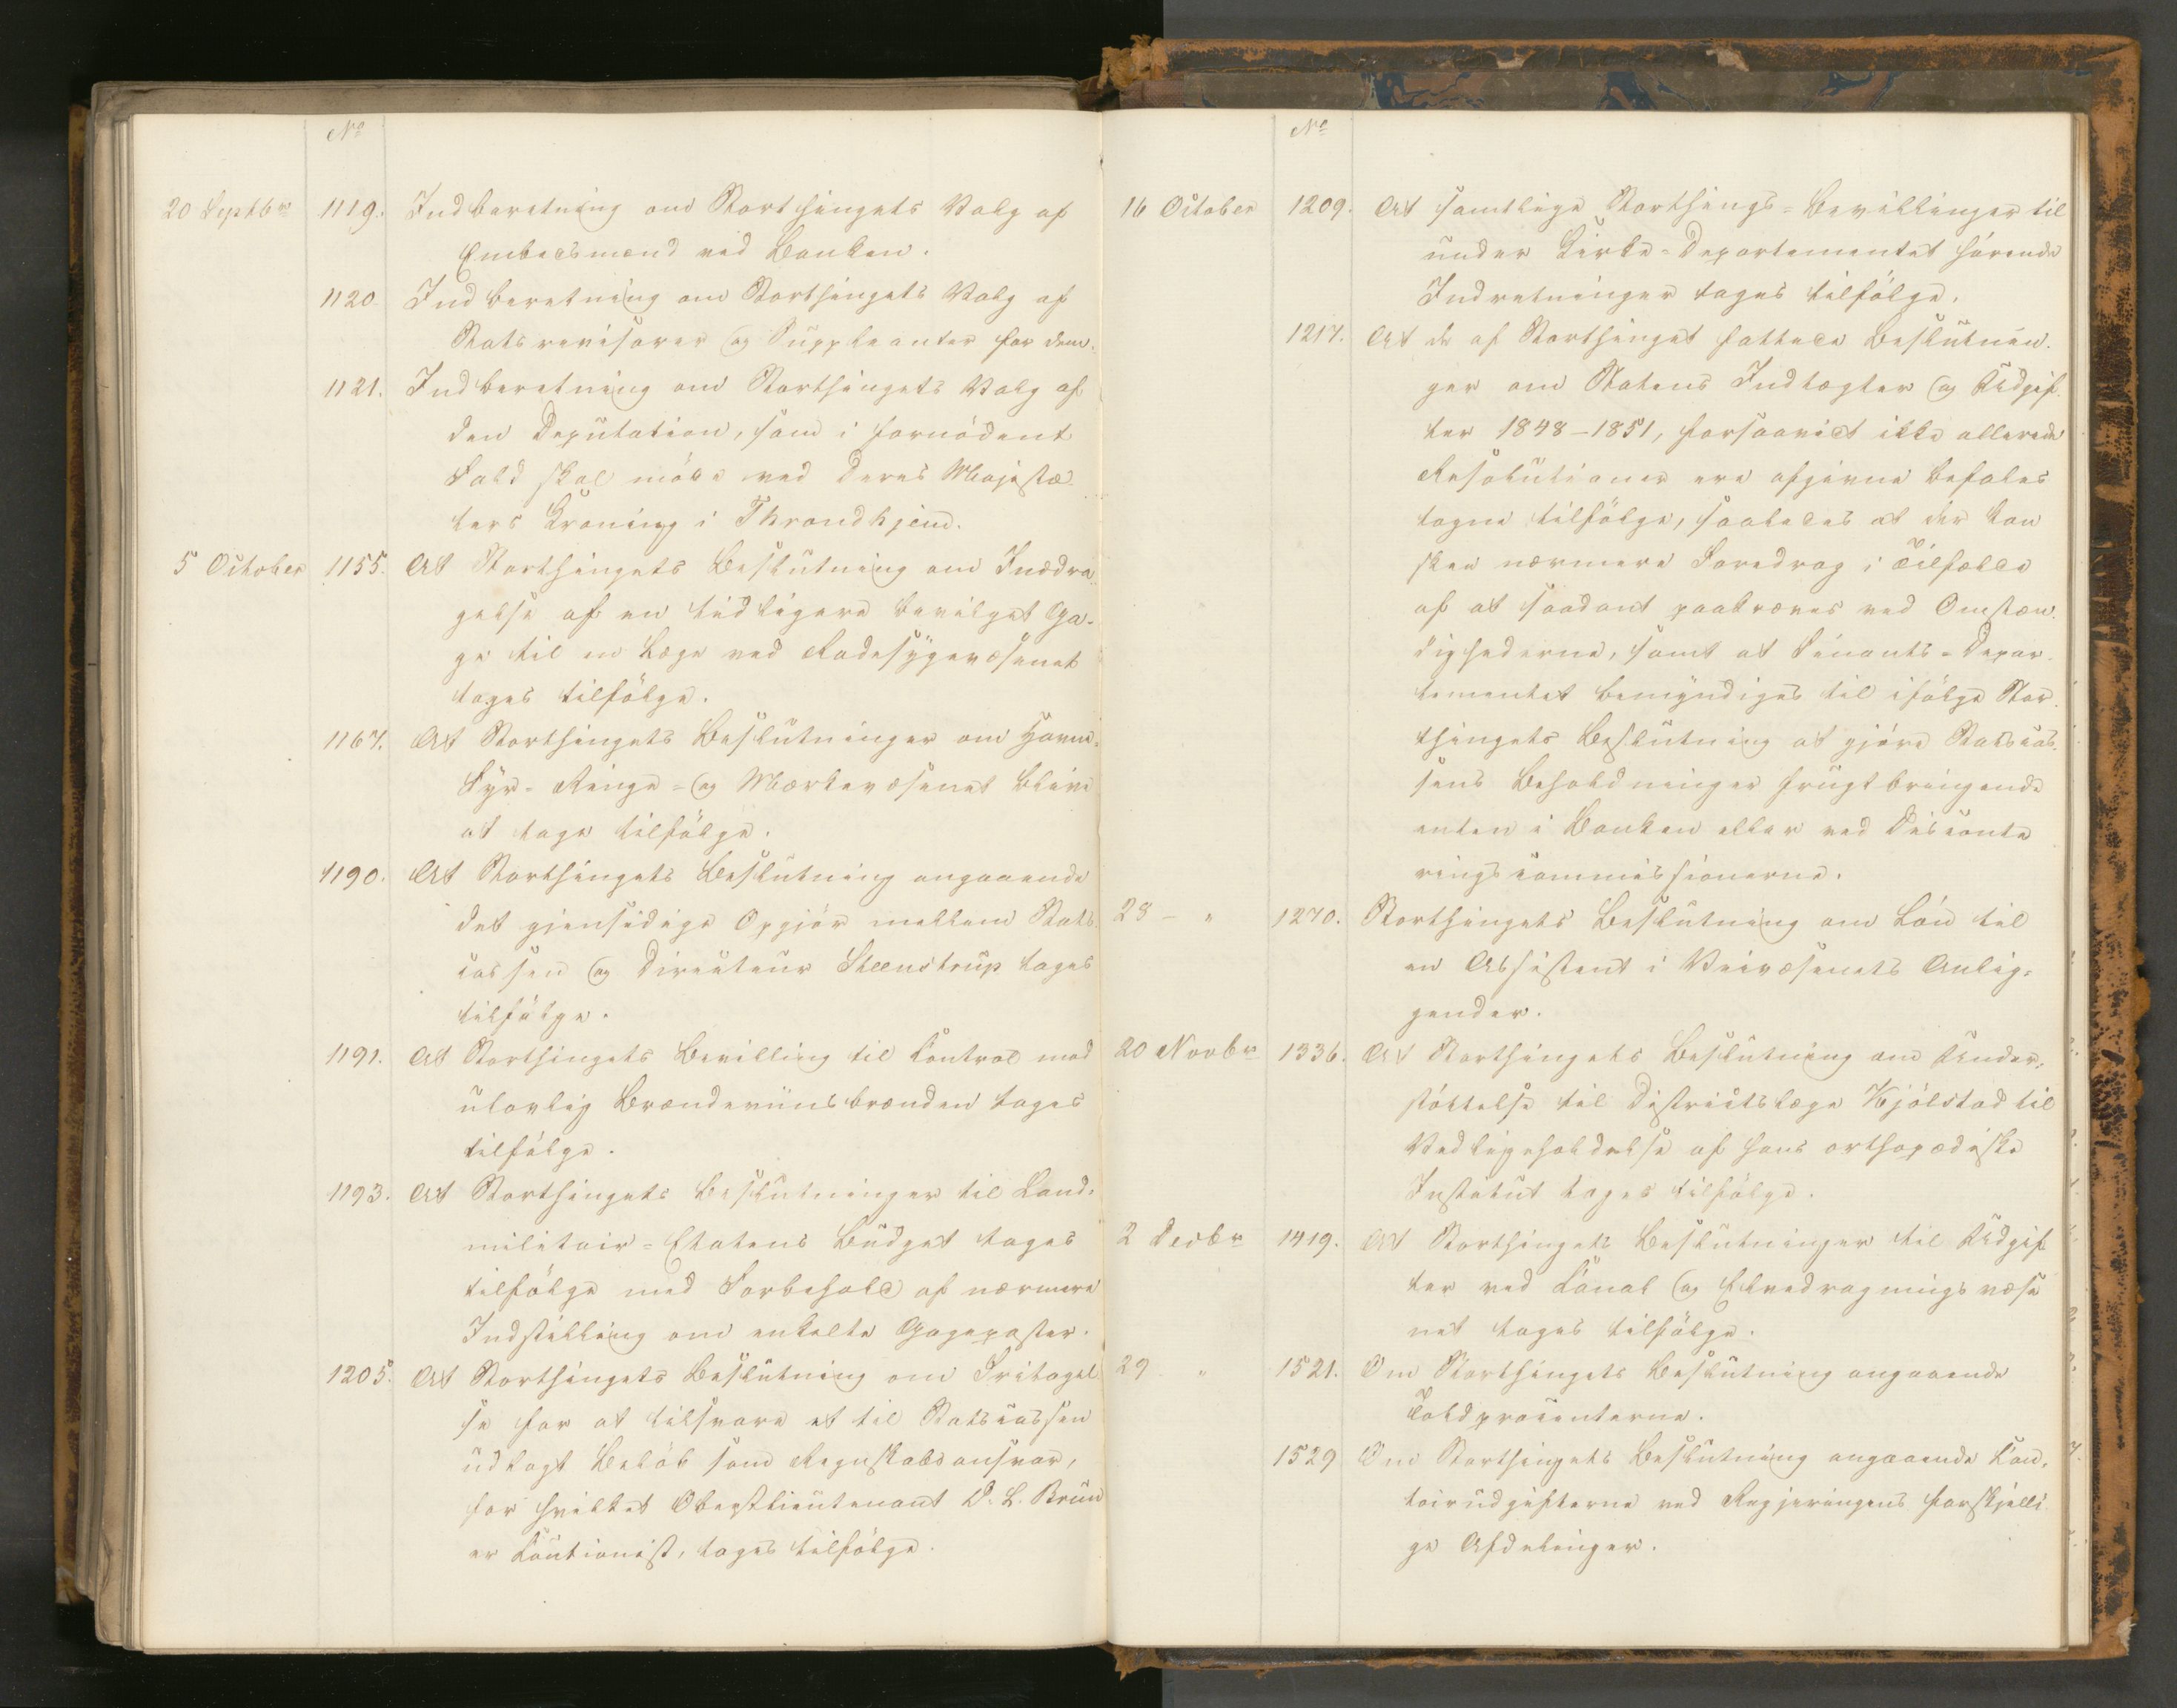 No
20 Septbr 1119. Indberetning om Storthingets Valg af
Embedsmænd ved Banken.
1120 Indberetning om Storthingets Valg af
Statsrevisorer og Suppleanter for dem.
1121. Indberetning om Storthingets Valg af
den Deputation, som i fornödent
Fald skal möde ved Deres Majestæ-
ters Kroning i Throndhjem.
5 October 1155. At Storthingets Beslutning om Inddra-
gelse af en tidligere bevilget Ga-
ge til en Læge ved Radesygevæsenet
tages tilfölge.
1167. At Storthingets Beslutninger om Havne-
Fyr- Ringe- og Mærkevæsenet blive
at tage tilfölge.
1190. At Storthingets Beslutning angaaende
det gjensidige Opgjör mellem Stats-
cassen og Directeur Steenstrup tages
tilfölge.
1191. At Storthingets Bevilling til Control mod
ulovlig Brændeviinsbrænden tages
tilfölge.
1193. At Storthingets Beslutninger til Land-
militair-Etatens Budget tages
tilfölge med Forbehold af nærmere
Indstilling om enkelte Gageposter.
1205. At Storthingets Beslutning om Fritagel-
se for at tilsvare et til Statscassen
udlagt Belöb som Regnskabsansvar,
for hvilket Oberstlieutenant D. L. Brun
er Cautionist, tages tilfölge.
No
16 October 1209. At samtlige Storthings-Bevillinger til
under Kirke-Departementet hörende
Indretninger tages tilfölge.
1217. At de af Storthinget fattede Beslutnin-
ger om Statens Indtægter og Udgif-
ter 1848-1851, forsaavidt ikke allerede
Resolutioner ere afgivne befales
tagne tilfölge, saaledes at der kan
skee nærmere Foredrag i Tilfælde
af at saadant paakræves ved Omstæn-
dighederne, samt at Finants-Depar-
tementet bemyndiges til ifölge Stor-
thingets Beslutning at gjöre Statscas-
sens Beholdninger frugtbringende
enten i Banken eller ved Disconte
ringscommissionerne.
28 - " 1270. Storthingets Beslutning om Lön til
en Assistent i Veivæsenets Anlig-
gender.
20 Novbr 1336. At Storthingets Beslutning om Under-
stöttelse til Districtslæge Kjölstad til
Vedligeholdelse af hans orthopædiske
Institut tages tilfölge.
2 Decbr 1419. At Storthingets Beslutninger til Udgif
ter ved Canal og Elvedragningsvæse
net tages tilfölge.
29 " 1521. Om Storthingets Beslutning angaaende
Toldprocenterne.
1529 Om Storthingets Beslutning angaaende Con-
toirudgifterne ved Regjeringens forskjelli
ge Afdelinger.